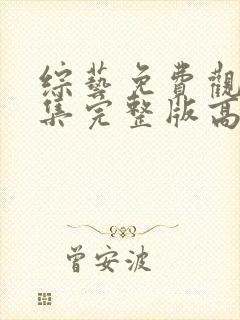 綜藝免費觀
集完整版高
曾安波